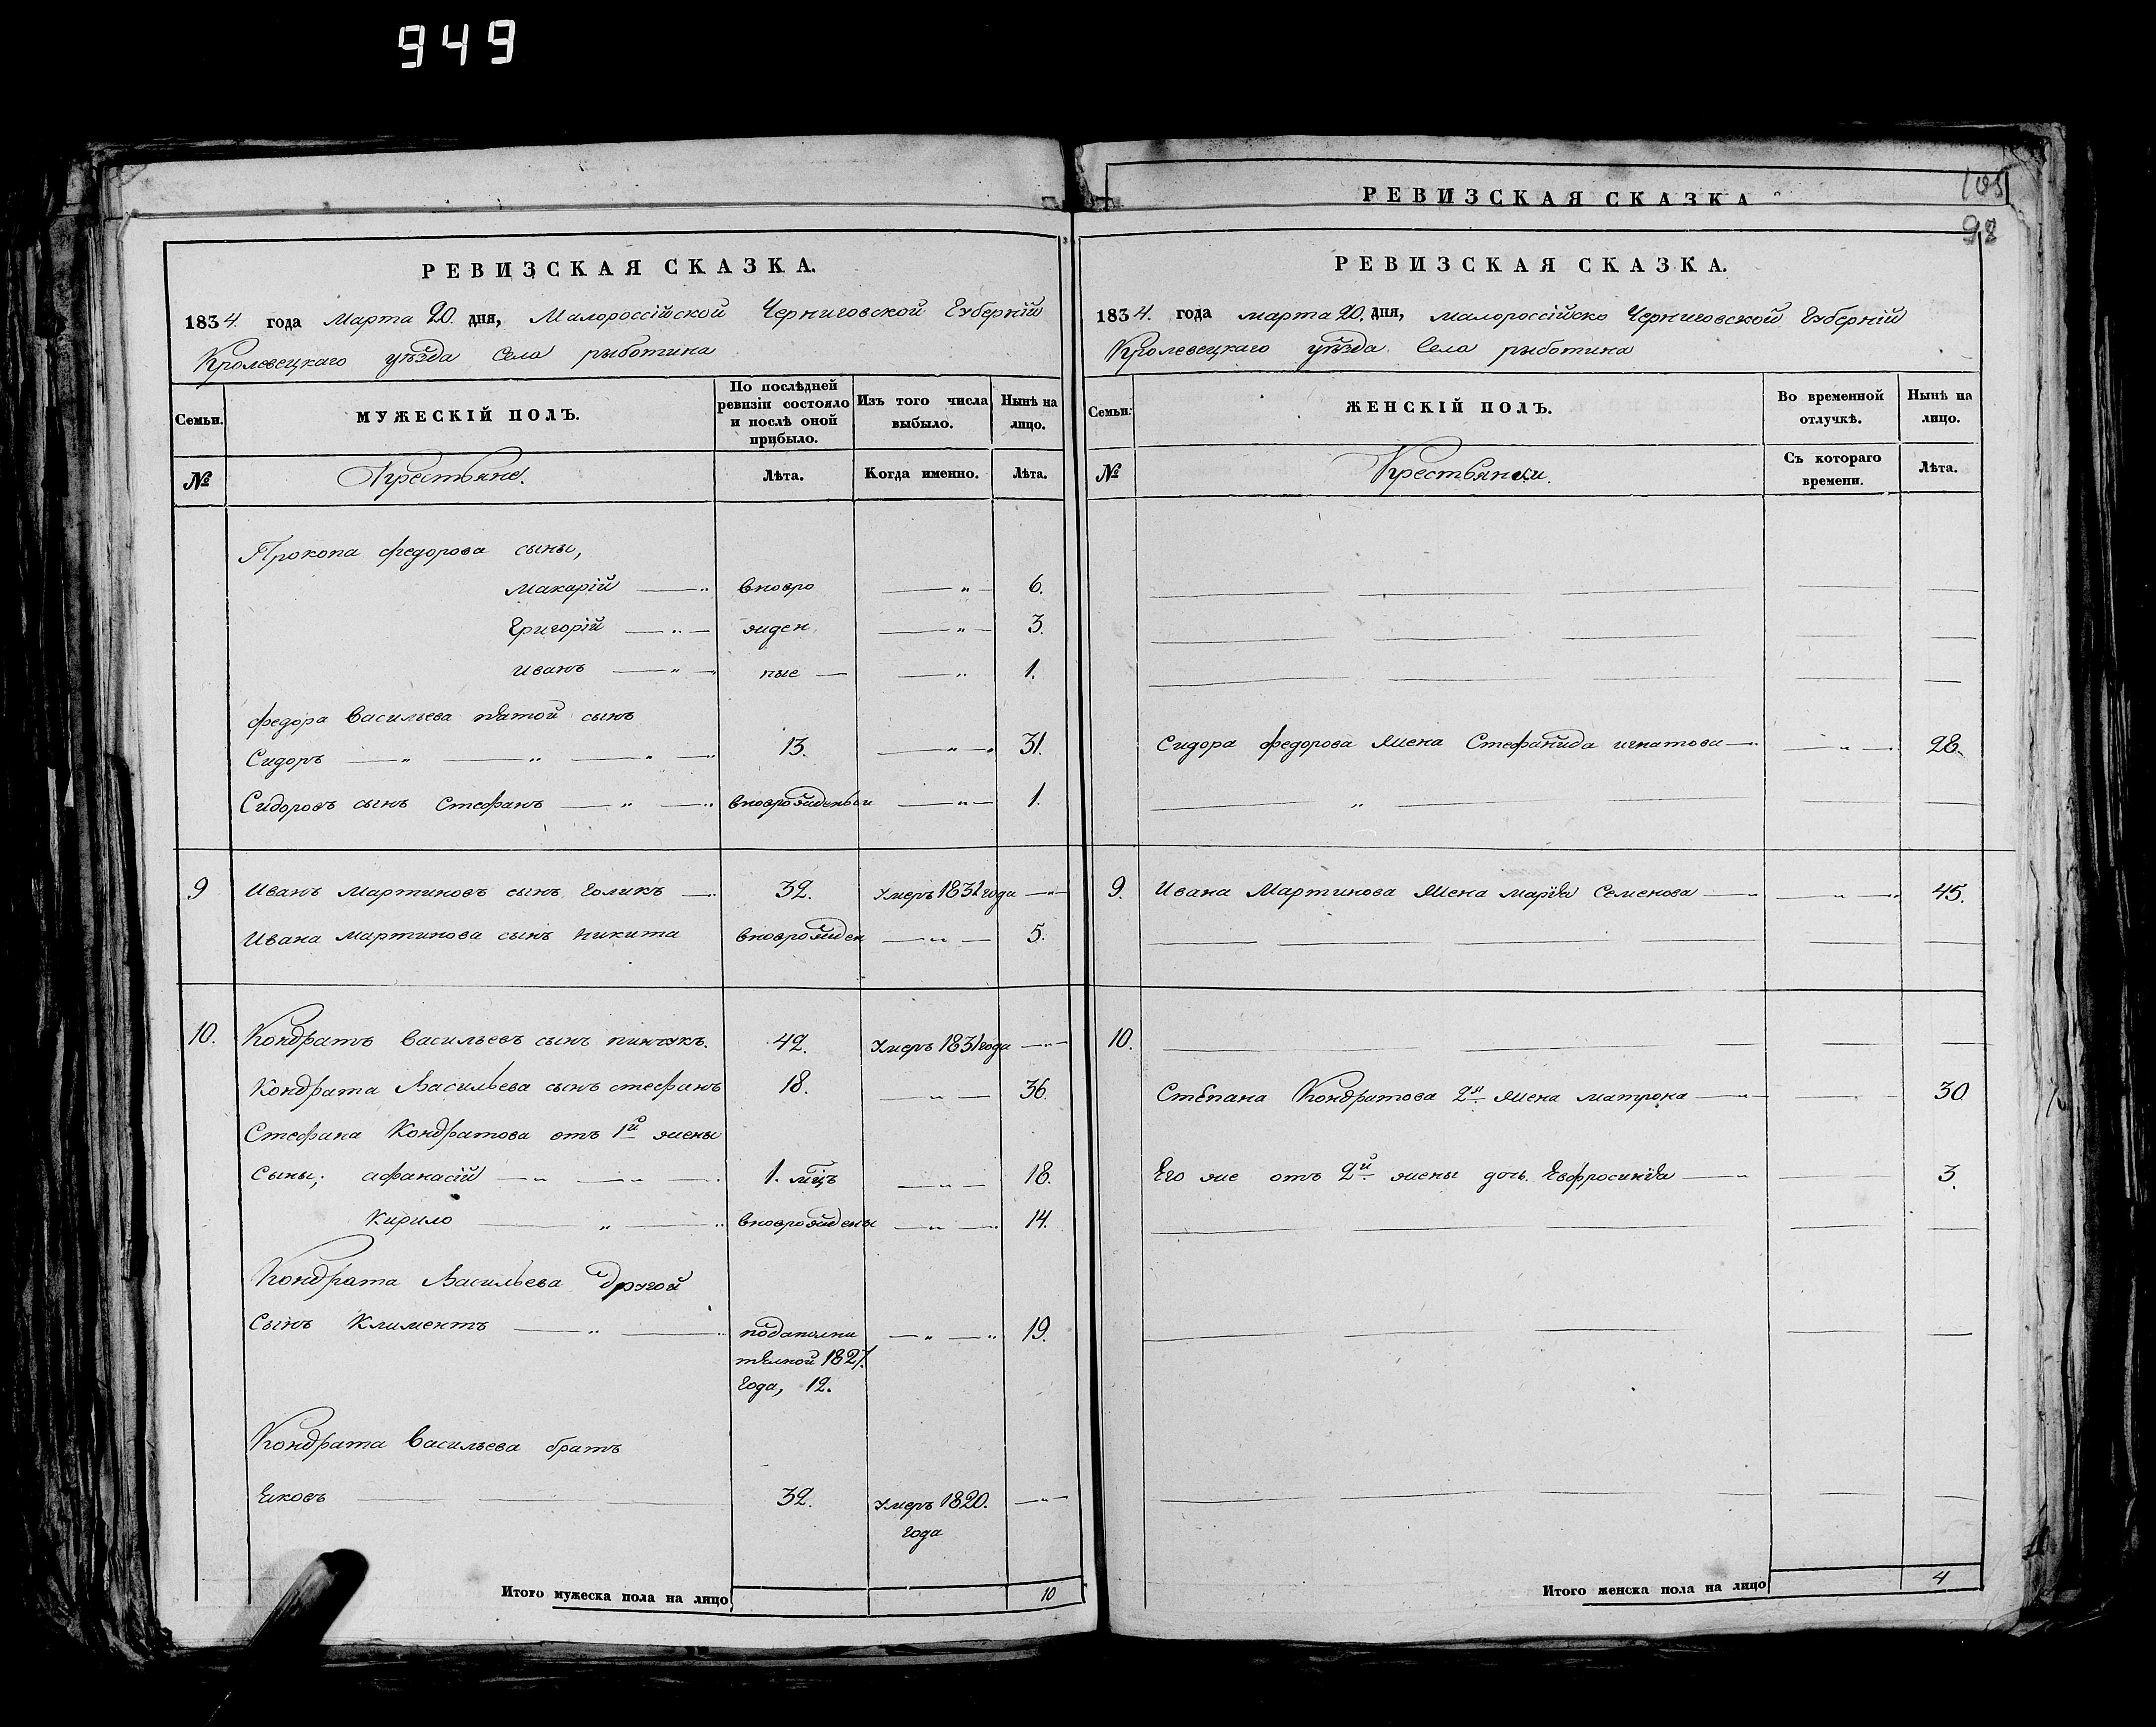 949
РЕВИЗСКАЯ СКАЗКА.
1834. года Марта 20. дня, Малороссійской Черниговской Губерній
Кролевецкаго уѣзда Села рыботина
Семьи.
МУЖЕСКІЙ ПОЛЪ.
По послѣдней ревизіи состояло и послѣ оной прибыло.
Изъ того числа выбыло.
Нынѣ на лицо.
№
Крестьяне.
Лѣта.
Когда именно.
Лѣта.
Прокопа федорова сыны,
Макарій вновро 6.
Григорій жден 3.
иванъ ные 1.
федора Васильева пятой сынъ
Сидоръ 13. 31.
Сидоровъ сынъ Стефанъ вноврожденый 1.
9 Иванъ Мартиновъ сынъ Голикъ 32. Умеръ 1831 года
Ивана Мартинова сынъ Никита вноврожден 5.
10. Кондратъ Васильевъ сынъ пинчукъ. 42. Умеръ 1831 года
Кондрата Васильева сынъ стефанъ 18. 36.
Стефана Кондратова отъ 1й жены
Сыны; афанасій 1. мцъ 18.
Кирило вноврождены 14.
Кондрата Васильева Другой
Сынъ Климентъ 19.
подаполни
тѣлной 1827.
Года, 12.
Кондрата Васильева братъ
Яковъ 32. Умеръ 1820.
года
Итого мужеска пола на лицо 10
РЕВИЗСКАЯ СКАЗКА
105
98
РЕВИЗСКАЯ СКАЗКА.
1834. года марта 20. дня, малороссійско Черниговской Губерній
Кролевецкаго уѣзда Села рыботина
Семьи.
ЖЕНСКІЙ ПОЛЪ.
Во временной отлучкѣ.
Нынѣ на лицо.
№
Крестьянки.
Съ котораго времени.
Лѣта.
Сидора федорова Жена Стефанида игнатова 28.
9. Ивана Мартинова Жена марія Семенова 45.
10.
Степана Кондратова 2я Жена матрона 30
Его же отъ 2й жены дочь Евфросинія 3.
Итого женска пола на лицо 4